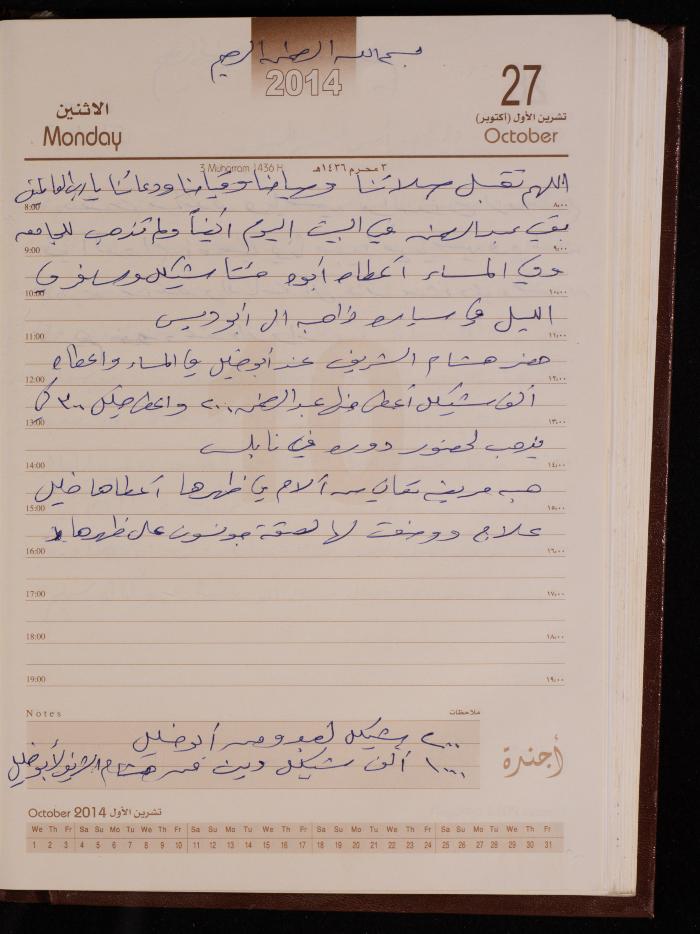 بسم الله الرحمن الرحيم
2014
27
الاثنين
تشرين الأول (أكتوبر)
Monday
October
3 Muharram 1436 H
٣ محرم ١٤٣٦هـ
اللهم تقبل صلاتنا وصيامنا وقيامنا ودعائنا يا رب العالمين
8:00
٨:٠٠
بقي عبد الرحمن في البيت اليوم أيضاً ولم تذهب للجامعه
9:00
٩:٠٠
وفي المساء أعطاه أبوه مئتا شيكل وسافر في
10:00
١٠:٠٠
الليل في سياره ذاهبه الى أبو ديس
11:00
١١:٠٠
حضر هشام الشريف عند أبو خليل في المساء واعطاه
12:00
١٢:٠٠
ألف شيكل أعطى منها عبد الرحمن ٢٠٠ واعطى ٣٠٠ كي
13:00
١٣:٠٠
يذهب لحضور دوره في نابلس
14:00
١٤:٠٠
هبه مريضه تعاني من آلام في ظهرها أعطاها خليل
15:00
١٥:٠٠
علاج ووضعت لها لصقة جونسون على ظهرها
16:00
١٦:٠٠
17:00
١٧:٠٠
18:00
١٨:٠٠
19:00
١٩:٠٠
Notes
ملاحظات
٢٠٠ شيكل من أبو خليل
١٠٠٠ ألف شيكل دين من هشام الشريف لأبو خليل
أجندة
October 2014 تشرين الأول
We Th Fr Sa Su Mo Tu We Th Fr Sa Su Mo Tu We Th Fr Sa Su Mo Tu We Th Fr Sa Su Mo Tu We Th Fr
1 2 3 4 5 6 7 8 9 10 11 12 13 14 15 16 17 18 19 20 21 22 23 24 25 26 27 28 29 30 31